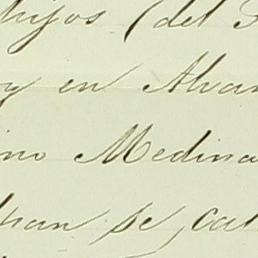 hijos (del
y en Alvar
ino Medina
se, cal